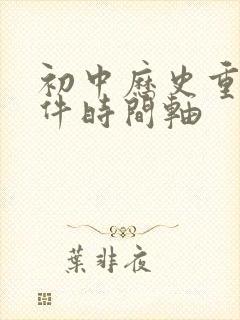 初中歷史重
件時間軸
葉非夜